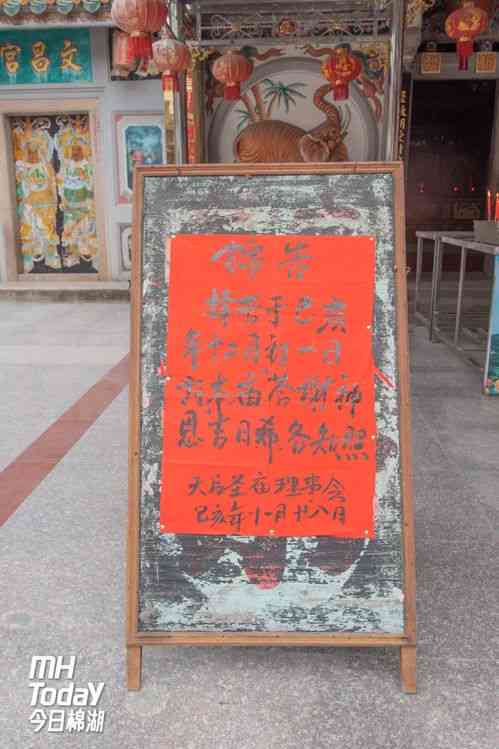 文昌宮
告
于己亥
年十二月初一日
本庙答謝神
恩吉日希各知照
天后圣庙理事会
己亥年十一月廿八日
MH
TodaY
今日棉湖